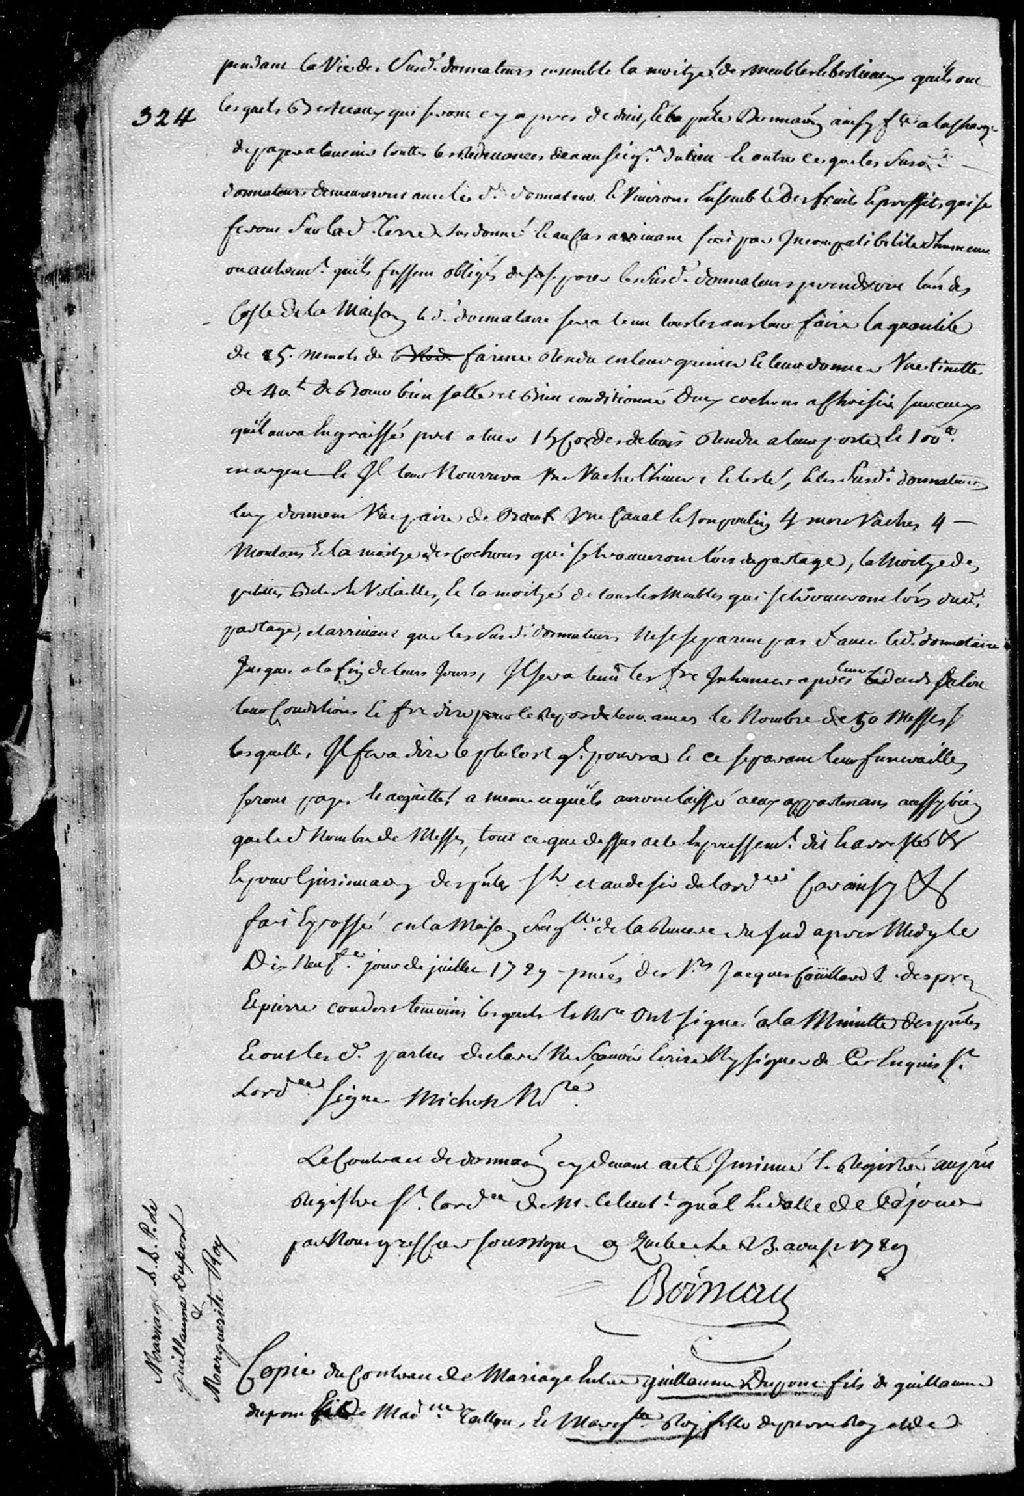 pendant la Vie des Susd. donnateurs ensemble la moityé des meubles & bestiaux qu'ils ont
324
lesquels Bestiaux qui seront cy apres de duit, & la pnte Donnaōn ainsy fte a la charge
de payer a l'avenir touttes les redevances deue au seigr. du lieu & outre ce que les Susd.
donnateurs demeureront avec les d. donnateur & Viveront Ensemble Des fruits & proffits qui se
feront Sur lad. Terre Susdonné & au cas arrivant soit par Incompatibilité d'humeur
ou autremt. quils fussent obligés de se separer les Susd. donnateurs prendront l'un des
Costé de la Maison led. donnataire sera tenu tous les ans leur faire la quantité
de 25. minots de farine Rendu en leur grenier & leur donner Une tinette
de 40 lt. de Beure bien sallé et Bien conditionné Deux cochons a Choisir sur ceux
qu'il aura Engraissé pret a tuer 15 Cordes de bois Rendu a leur porte & 100 lt.
en argent & Il leur Nourrira Une Vache l'hiver & l'esté, & les Susd. donnateurs
luy donnent Une paire de Boeufs Une Caval & son poulin 4 mere Vaches 4
Moutons & la moitye des Cochons qui se trouveront lors du partage, la Moitye des
petittes Betes & Volailles, & la moityé de tous les Meubles qui se trouveront lors dud.
partage, et arrivant que les Susd. donnateurs ne se separent pas d'avec led. donnataire
Jusques a la fin de leurs Jours, Il sera tenu les fre Inhumer apres leur deceds selon
leur Conditions & fre dire pour le Repos de leur ames le Nombre de 50 Messes
lesquelle, Il fera dire le plutost ql. pourra & ce separant leur funerailles
seront payez & acquittés a meme ce qu'ils auront laissé a eux appartenans aussy bien
que le d. Nombre de Messes, tout ce que dessus a eté Expressemt. dit & arresté &c
& pour l'Insinuaōn des pntes
fait & passé en la Maison Seiglle. de la Riviere du Sud apres Midy le
Dix Neufe. jour de juillet 1729 - pnces des Srs Jacques Couillard S. despres
& pierre temoins lesquels & Nre Ont Signé a la Minutte des pntes
& ont les d. parties declaré Ne sçavoir Ecrire Ny Signer de Ce Enquis St.
Lordce Signe Michon Nre.
Le Contract de donnaōn cy devant a eté Insinué & Registré aux pns
Registre St. lordce de Mr. le lieut. gnāl & dalle de Ce jour
par Nous greffier soussigné a Quebec le 23 aoust 1729
Boisseau
Mariage S. S. P. de
Guillaume Dupont
&
Marguerite Roy
Copie du Contract de Mariage Entre guillaume Dupont fils de guillaume
dupont & de Madne Taillon, & Margte Roy fille de pierre Roy et de